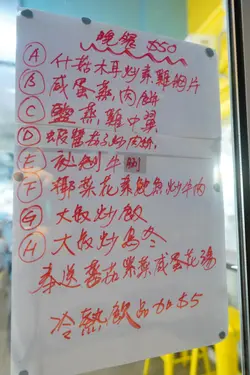 晚餐 $50
Ⓐ 什菇木耳炒素雞翅片
Ⓑ 咸蛋蒸肉餅
Ⓒ 鹽蒸雞中翼
Ⓓ 蝦醬茄子炒肉
Ⓔ 牛
Ⓕ 椰菜花炒牛肉
Ⓖ 大阪炒飯
Ⓗ 大阪炒烏冬
奉送蕃茄紫菜咸蛋花湯
冷熱飲品加$5